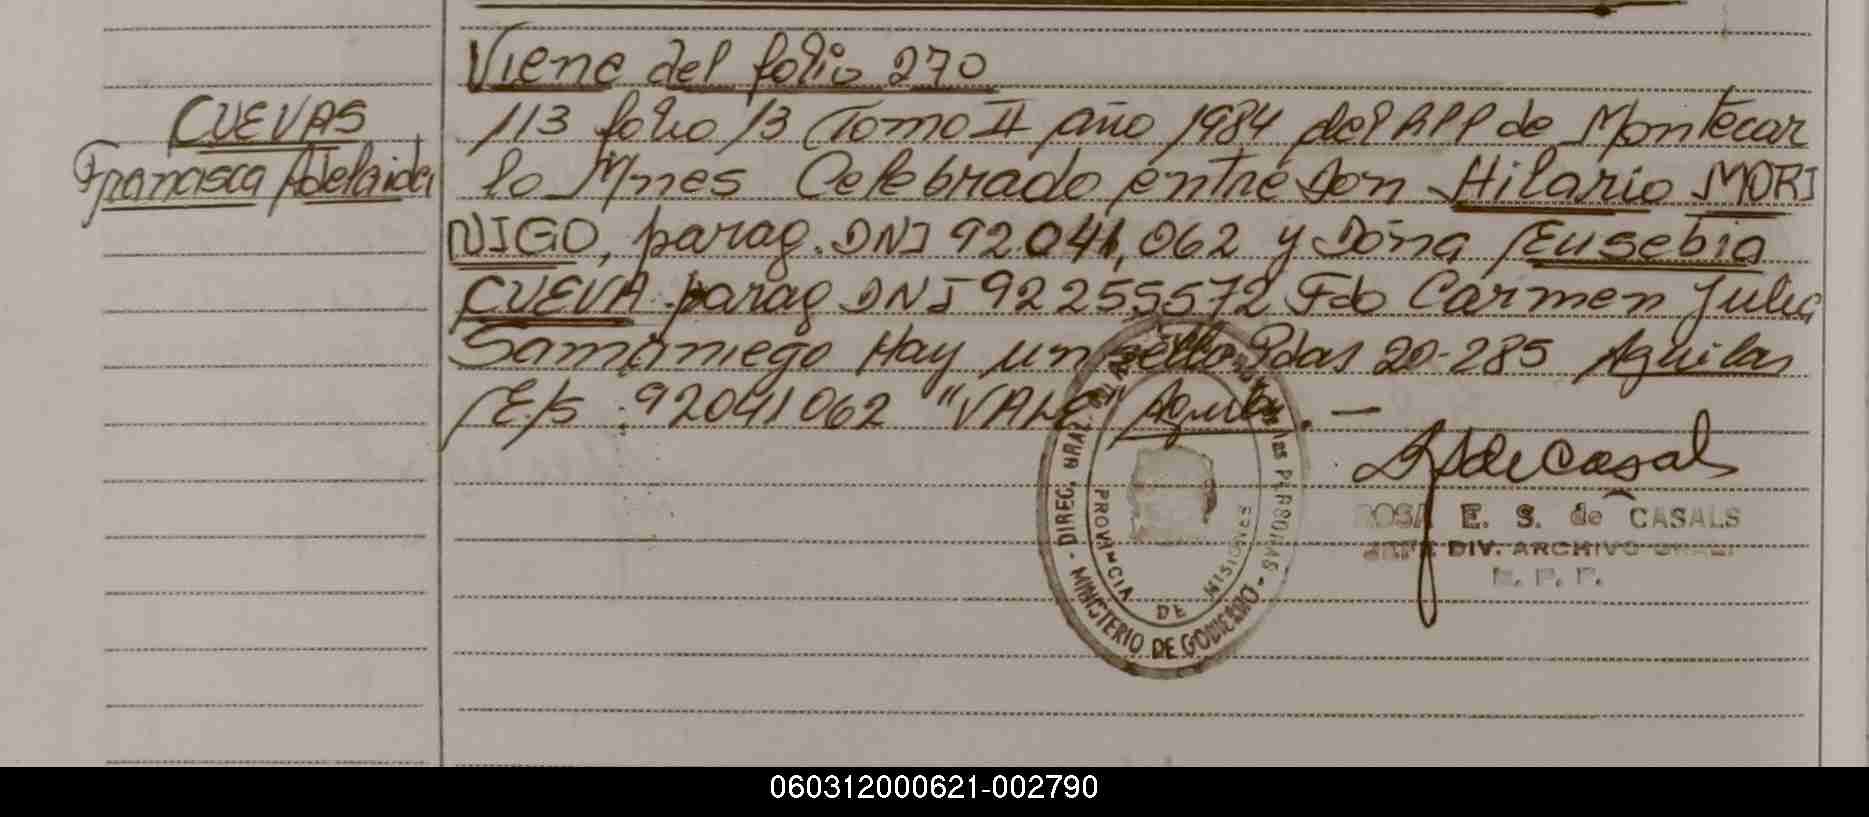 Viene del folio 270
CUEVAS
Francisca Adelaida
113 folio 13 Tomo II año 1984 del RPP de Montecar
lo Mnes Celebrado entre Don Hilario MORI
NIGO, parag. DNI 92.041,062 y Doña Eusebia
CUEVA parag DNI 92255572 Fdo Carmen Julia
Samaniego Hay un sello Pdas 20-285 Aguilas
E/s 92041062 "VALE" Aguilas. —
DIREC. GRAL. de las PERSONAS - MINISTERIO DE GOBIERNO -
PROVINCIA DE MISIONES
ROSA E. S. de CASALS
JEFE DIV. ARCHIVO GRAL.
R. P. P.
060312000621-002790